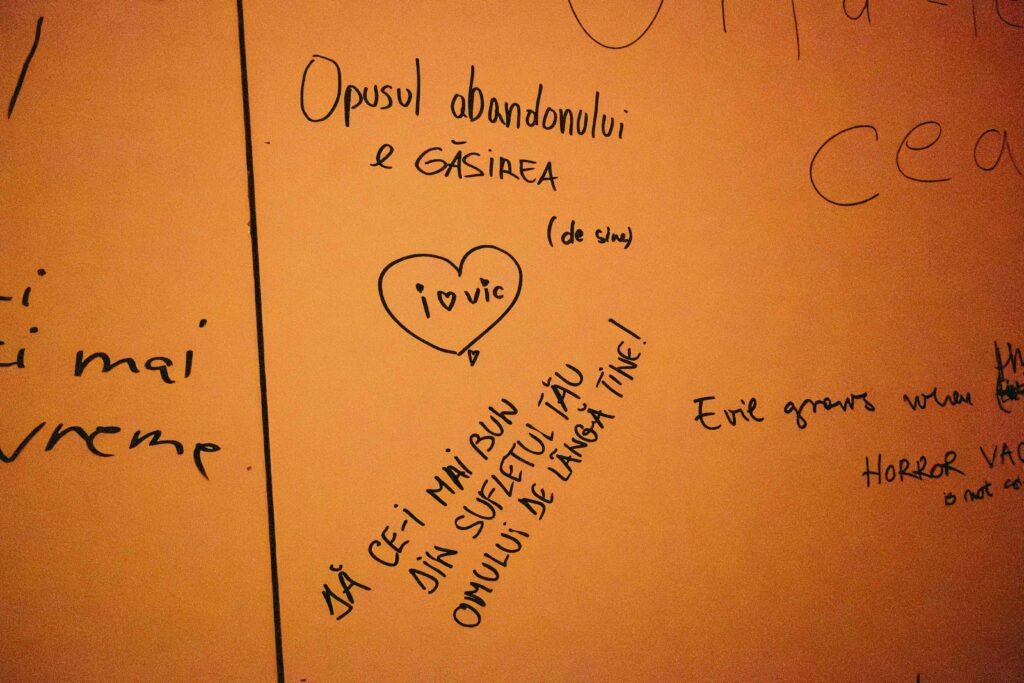 Opusul abandonului
e GĂSIREA
(de sine)
i ♡ vic
DĂ CE-I MAI BUN
DIN SUFLETUL TĂU
OMULUI DE LÂNGĂ TINE!
mai
vreme
cea
Evil grows when
HORROR
is not